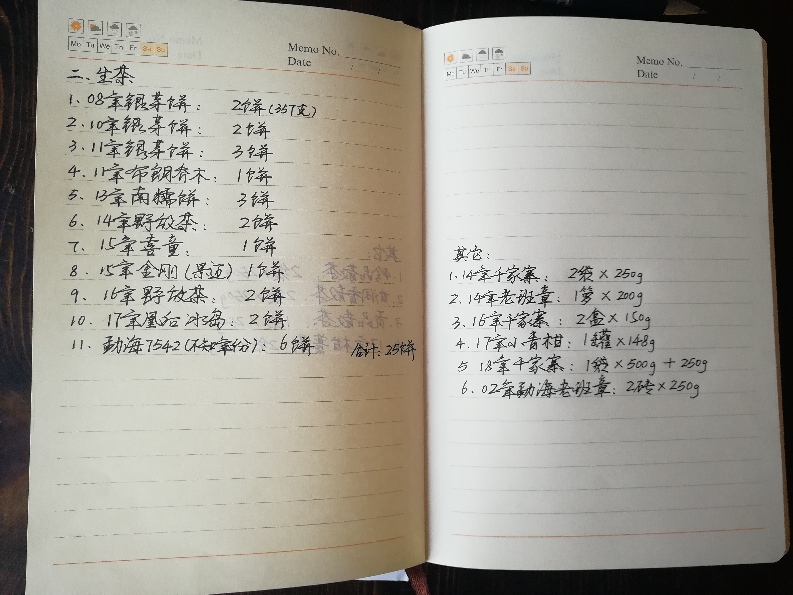 Mo Tu We Th Fr Sa Su
Memo No.
Date / /
二、生茶
1、08年银芽饼： 2饼(357克)
2、10年银芽饼： 2饼
3、11年银芽饼： 3饼
4、11年布朗乔木： 1饼
5、13年南糯饼： 3饼
6、14年野放茶： 2饼
7、15年喜童： 1饼
8、15年金刚(景迈) 1饼
9、16年野放茶： 2饼
10、17年凰台冰岛：2饼
11、勐海7542(不知年份)：6饼 合计：25饼
Mo Tu We Th Fr Sa Su
Memo No.
Date / /
其它：
1、14年千家寨： 2袋×250g
2、14年老班章：1箩×200g
3、16年千家寨：2盒×150g
4、17年小青柑：1罐×148g
5、18年千家寨：1袋×500g+250g
6、02年勐海老班章：2砖×250g